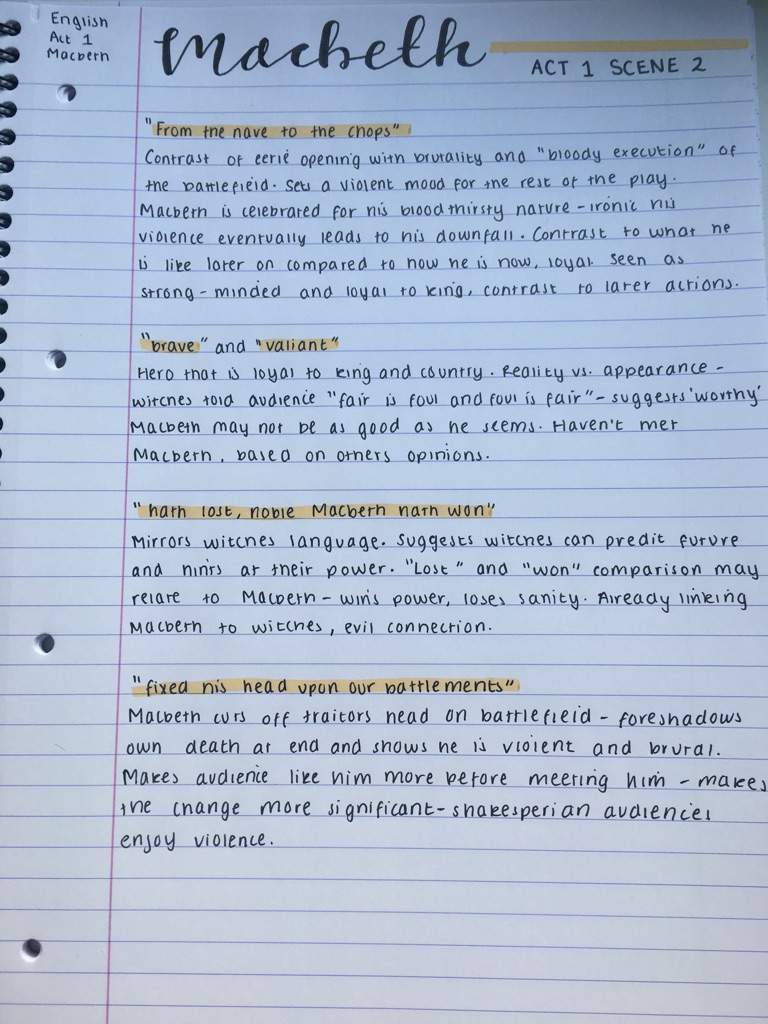 English
Act 1
Macbeth
Macbeth
ACT 1 SCENE 2
"From the nave to the chops"
Contrast of eerie opening with brutality and "bloody execution" of
the battlefield. Sets a violent mood for the rest of the play.
Macbeth is celebrated for his bloodthirsty nature - ironic his
violence eventually leads to his downfall. Contrast to what he
is like later on compared to how he is now, loyal. Seen as
strong-minded and loyal to king, contrast to later actions.
"brave" and "valiant"
Hero that is loyal to king and country. Reality vs. appearance -
witches told audience "fair is foul and foul is fair" - suggests 'worthy'
Macbeth may not be as good as he seems. Haven't met
Macbeth, based on others opinions.
"hath lost, noble Macbeth hath won"
Mirrors witches language. Suggests witches can predit future
and hints at their power. "Lost" and "won" comparison may
relate to Macbeth - wins power, loses sanity. Already linking
Macbeth to witches, evil connection.
"fixed his head upon our battlements"
Macbeth cuts off traitors head on battlefield - foreshadows
own death at end and shows he is violent and brutal.
Makes audience like him more before meeting him - makes
the change more significant - shakesperian audiences
enjoy violence.